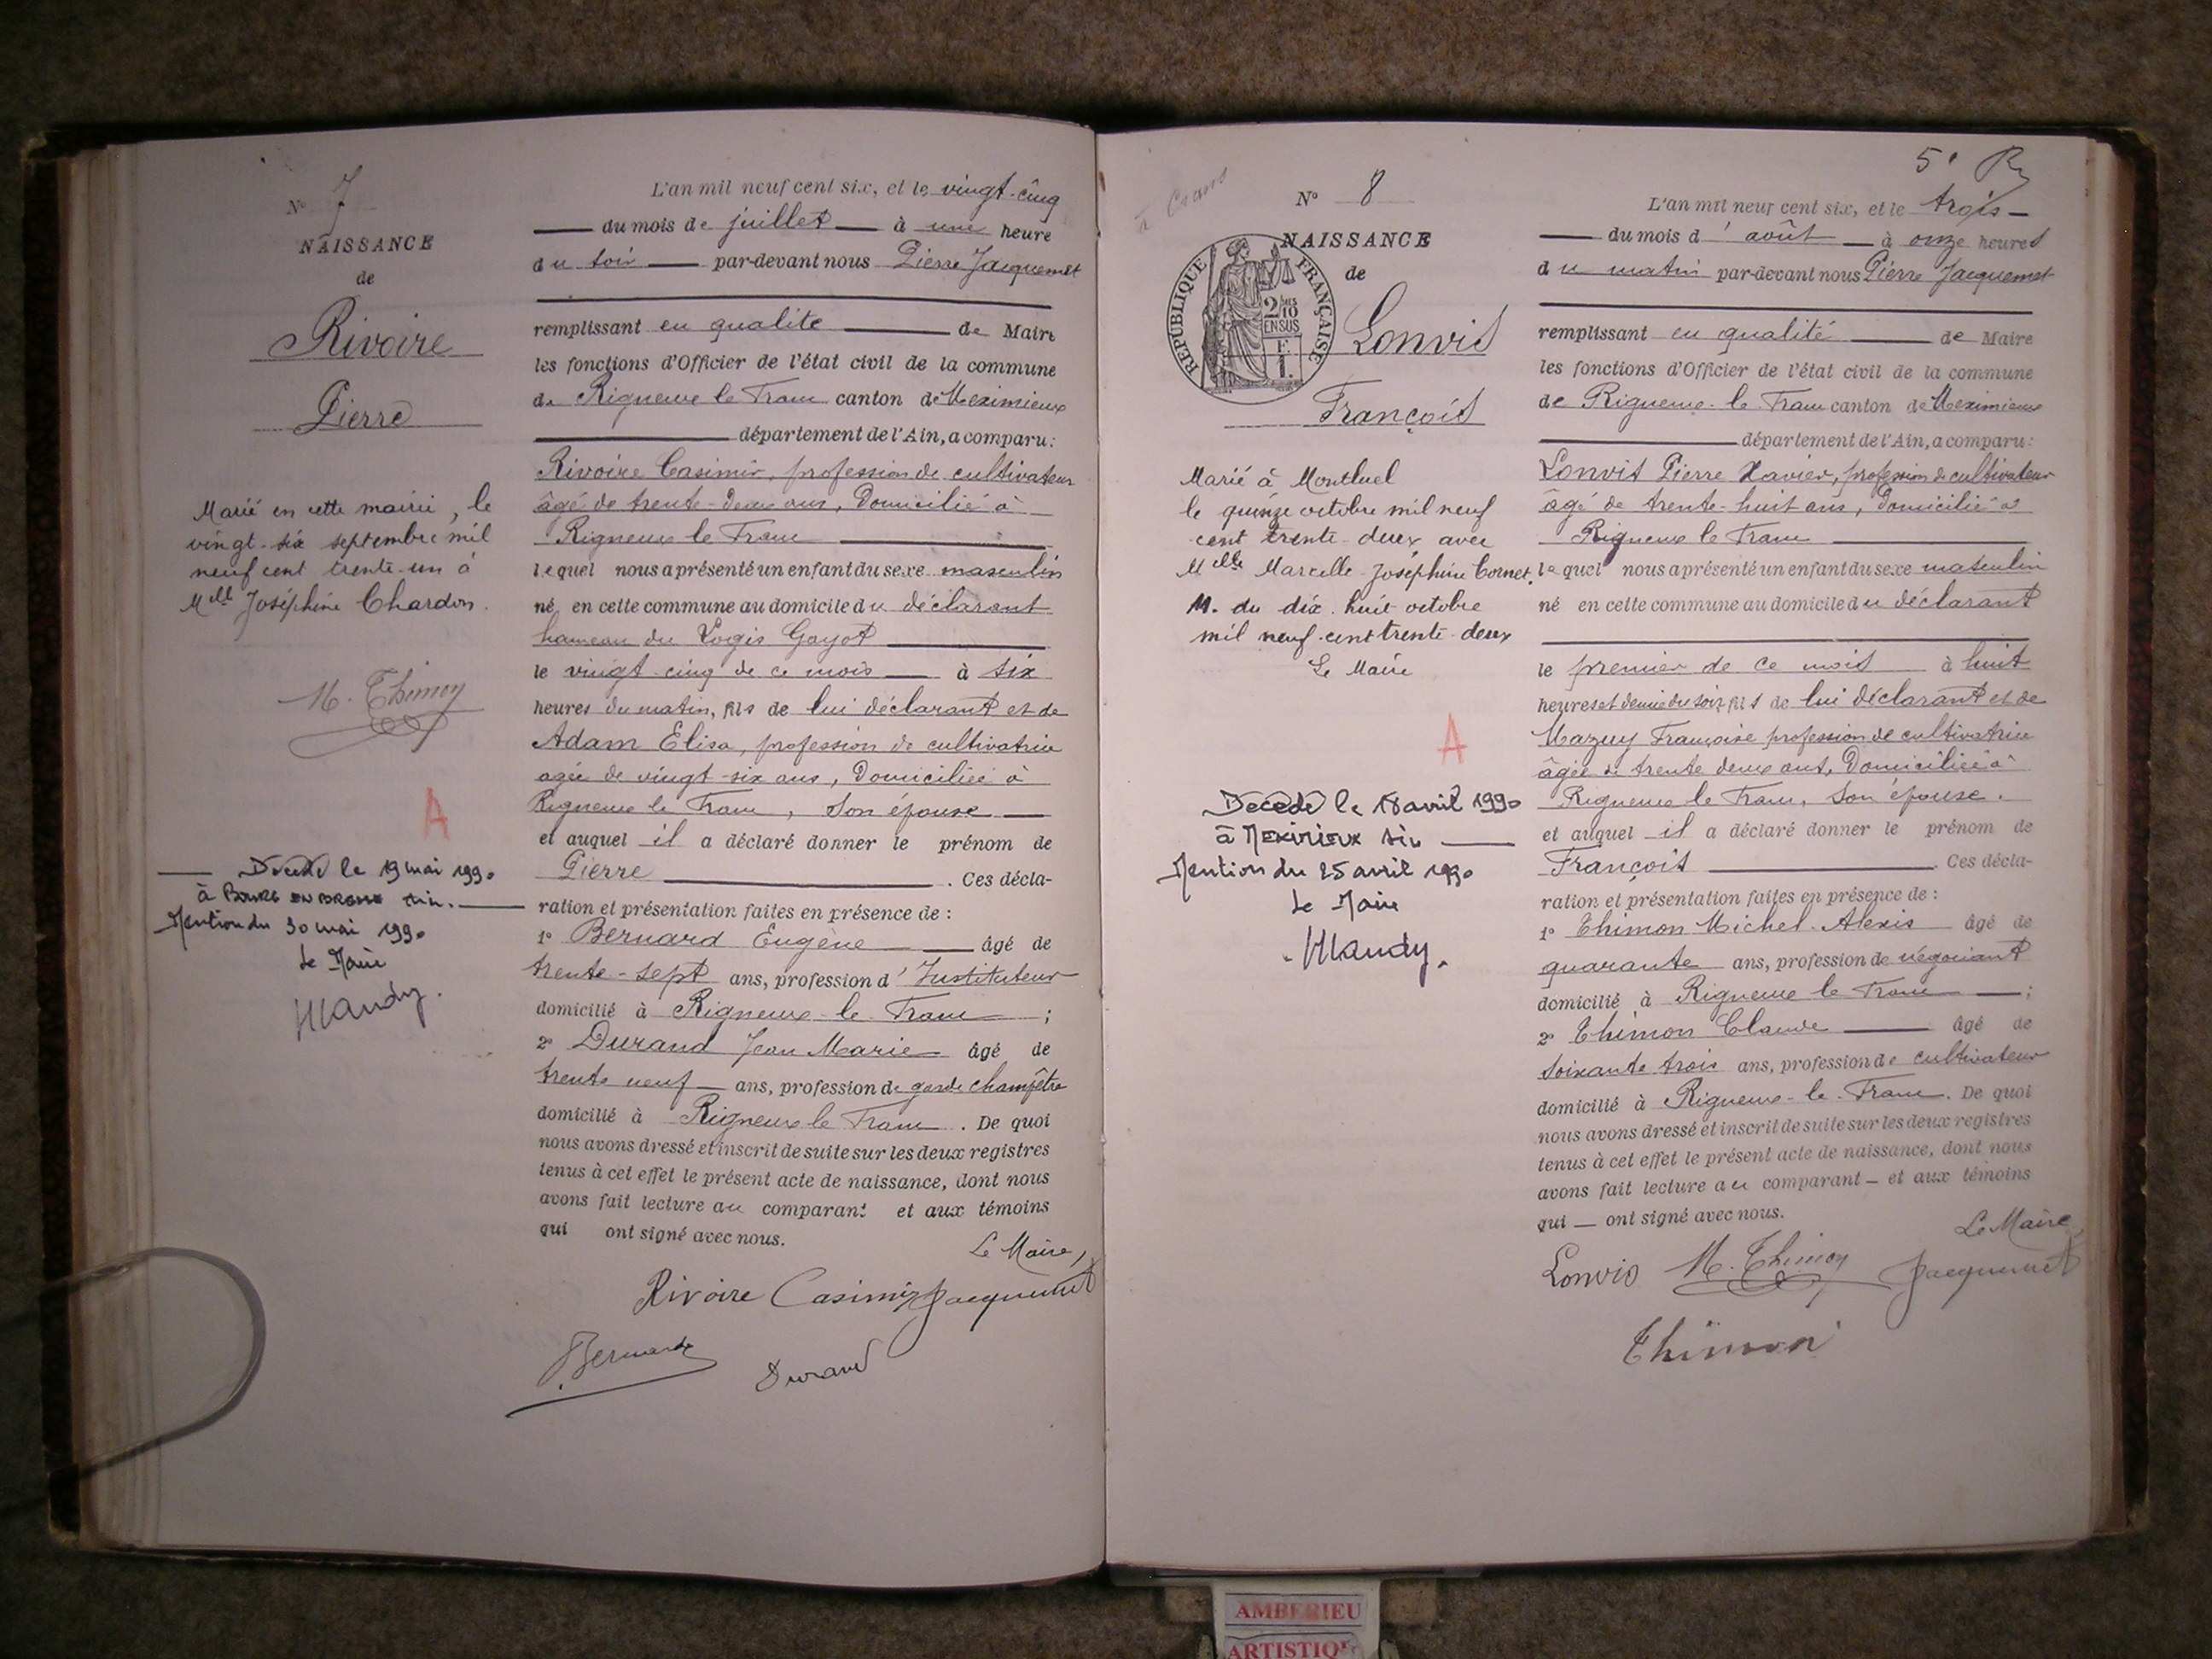 N° 7
NAISSANCE
de
Rivoire
Pierre
Marié en cette mairie, le
vingt-six septembre mil
neuf cent trente-un à
Melle Joséphine Chardon.
M. Thimon
A
Décédé le 19 mai 1990
à BOURG EN BRESSE Ain.
Mention du 30 mai 1990
Le Maire
L'an mil neuf cent six, et le vingt-cinq
du mois de juillet à une heure
du soir par-devant nous Pierre Jacquemet
remplissant en qualité de Maire
les fonctions d'Officier de l'état civil de la commune
de Rigneux le Franc canton de Meximieux
département de l'Ain, a comparu:
Rivoire Casimir, profession de cultivateur
âgé de trente-deux ans, Domicilié à
Rigneux le Franc
lequel nous a présenté un enfant du sexe masculin
né, en cette commune au domicile du déclarant
hameau du Logis Goyot
le vingt cinq de ce mois à six
heures du matin, fils de lui déclarant et de
Adam Elisa, profession de cultivatrice
agée de vingt-six ans, Domiciliée à
Rigneux le Franc, Son épouse
et auquel il a déclaré donner le prénom de
Pierre . Ces décla-
ration et présentation faites en présence de :
1° Bernard Eugène âgé de
trente-sept ans, profession d'Instituteur
domicilié à Rigneux-le-Franc ;
2° Durand Jean Marie âgé de
trente neuf ans, profession de garde champêtre
domicilié à Rigneux le Franc . De quoi
nous avons dressé et inscrit de suite sur les deux registres
tenus à cet effet le présent acte de naissance, dont nous
avons fait lecture au comparant et aux témoins
qui ont signé avec nous.
Le Maire,
Rivoire Casimir Jacquemet
Bernard Durand
5e
N° 8
NAISSANCE
de
RÉPUBLIQUE FRANÇAISE
2/10 EN SUS
F. 1.
Lonvis
François
Marié à Montluel
le quinze octobre mil neuf
cent trente-deux avec
Melle Marcelle-Joséphine Cornet.
M. du dix-huit octobre
mil neuf-cent trente-deux
Le Maire
A
Décédé le 18 avril 1990
à MEXIMIEUX Ain
Mention du 25 avril 1990
Le Maire
L'an mil neuf cent six, et le trois
du mois d'août à onze heures
du matin par-devant nous Pierre Jacquemet
remplissant en qualité de Maire
les fonctions d'Officier de l'état civil de la commune
de Rigneux-le-Franc canton de Meximieux
département de l'Ain, a comparu:
Lonvis Pierre Xavier, profession de cultivateur
âgé de trente-huit ans, Domicilié à
Rigneux le Franc
lequel nous a présenté un enfant du sexe masculin
né en cette commune au domicile du déclarant
le premier de ce mois à huit
heures et demie du soir, fils de lui déclarant et de
Mazuy Françoise profession de cultivatrice
âgée de trente deux ans, Domiciliée à
Rigneux le Franc, Son épouse.
et auquel il a déclaré donner le prénom de
François . Ces décla-
ration et présentation faites en présence de :
1° Thimon Michel-Alexis âgé de
quarante ans, profession de négociant
domicilié à Rigneux le Franc ;
2° Thimon Claude âgé de
soixante trois ans, profession de cultivateur
domicilié à Rigneux-le-Franc. De quoi
nous avons dressé et inscrit de suite sur les deux registres
tenus à cet effet le présent acte de naissance, dont nous
avons fait lecture au comparant et aux témoins
qui ont signé avec nous.
Le Maire,
Lonvis M. Thimon Jacquemet
Thimon
AMBERIEU
ARTISTIQUE